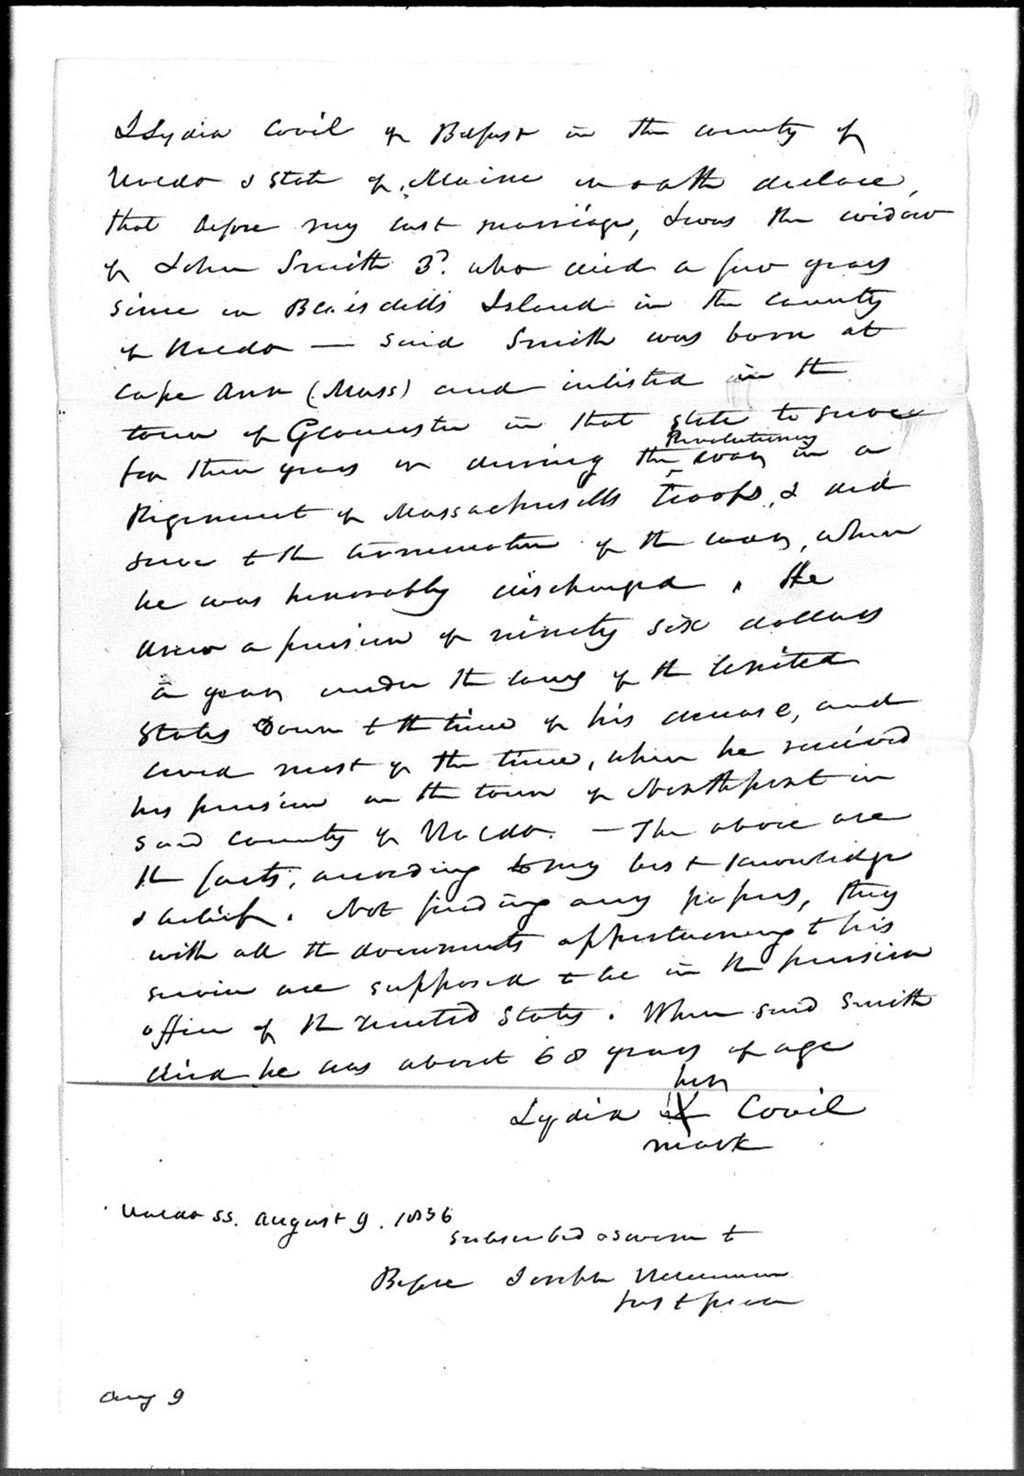 I Lydia Covil of Belfast in the county of
Waldo & State of Maine on oath declare,
that before my last marriage, I was the widow
of John Smith 3d. who died a few years
since on Blaisdells Island in the county
of Waldo — said Smith was born at
Cape Ann (Mass) and inlisted in the
town of Gloucester in that state to serve
for three years or during the Revolutionary war, in a
Regiment of Massachusetts troops, & did
serve to the termination of the war, when
he was honorably discharged. He
drew a pension of ninety six dollars
a year, under the laws of the United
States down to the time of his decease, and
lived most of the time, when he received
his pension in the town of Northport in
said county of Waldo. — The above are
the facts, according to my best knowledge
& belief. Not finding any papers, they
with all the documents appertaining to his
service are supposed to be in the pension
office of the United States. When said Smith
died he was about 68 years of age
her
Lydia X Covil
mark
Waldo ss. August 9. 1836
Subscribed & sworn to
Before Joseph
Just peace
Aug 9